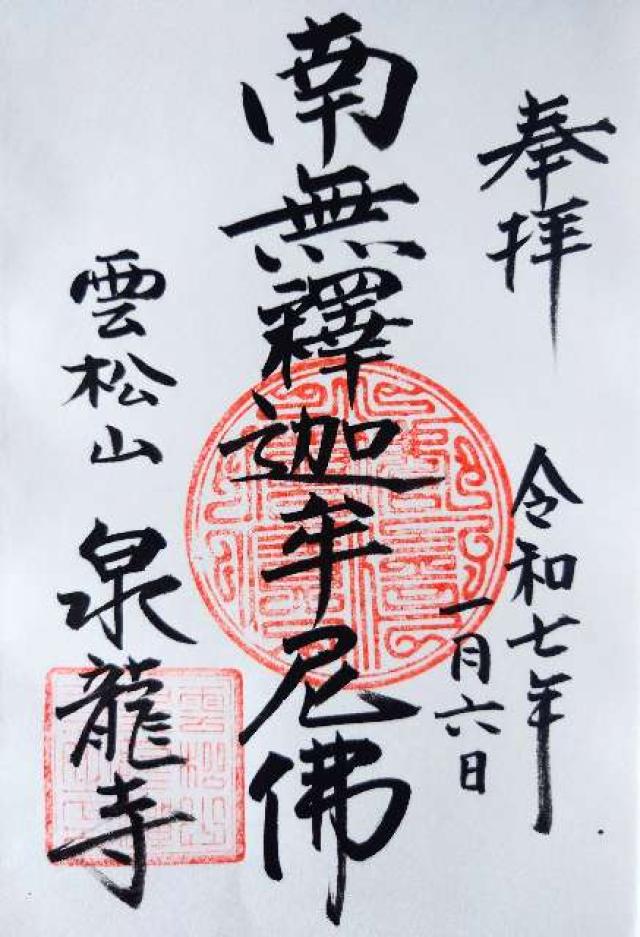 奉拝
令和七年
一月六日
南無釋迦牟尼佛
雲松山
泉龍寺